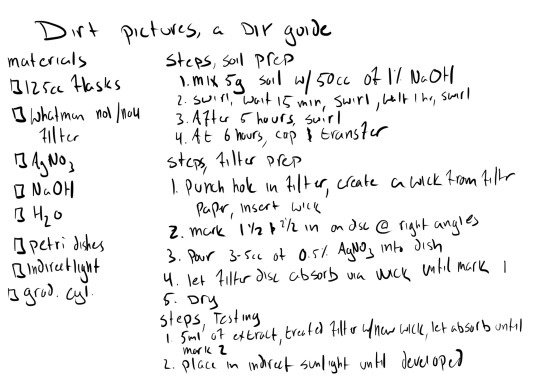 Dirt pictures, a DIY guide
materials
125cc flasks
Whatman no1/no4
filter
AgNO3
NaOH
H2O
petri dishes
Indirect light
grad. cyl.
Steps, soil prep
1. mix 5g soil w/ 50cc of 1% NaOH
2. swirl, wait 15 min, swirl, wait 1hr, swirl
3. After 5 hours, swirl
4. At 6 hours, cap & transfer
Steps, filter prep
1. Punch hole in filter, create a wick from filter
paper, insert wick
2. mark 1 1/2 & 2 1/2 in on disc @ right angles
3. Pour 3-5cc of 0.5% AgNO3 into dish
4. let filter disc absorb via wick until mark 1
5. Dry
Steps, Testing
1. 5ml of extract, treated filter w/new wick, let absorb until
mark 2
2. place in indirect sunlight until developed